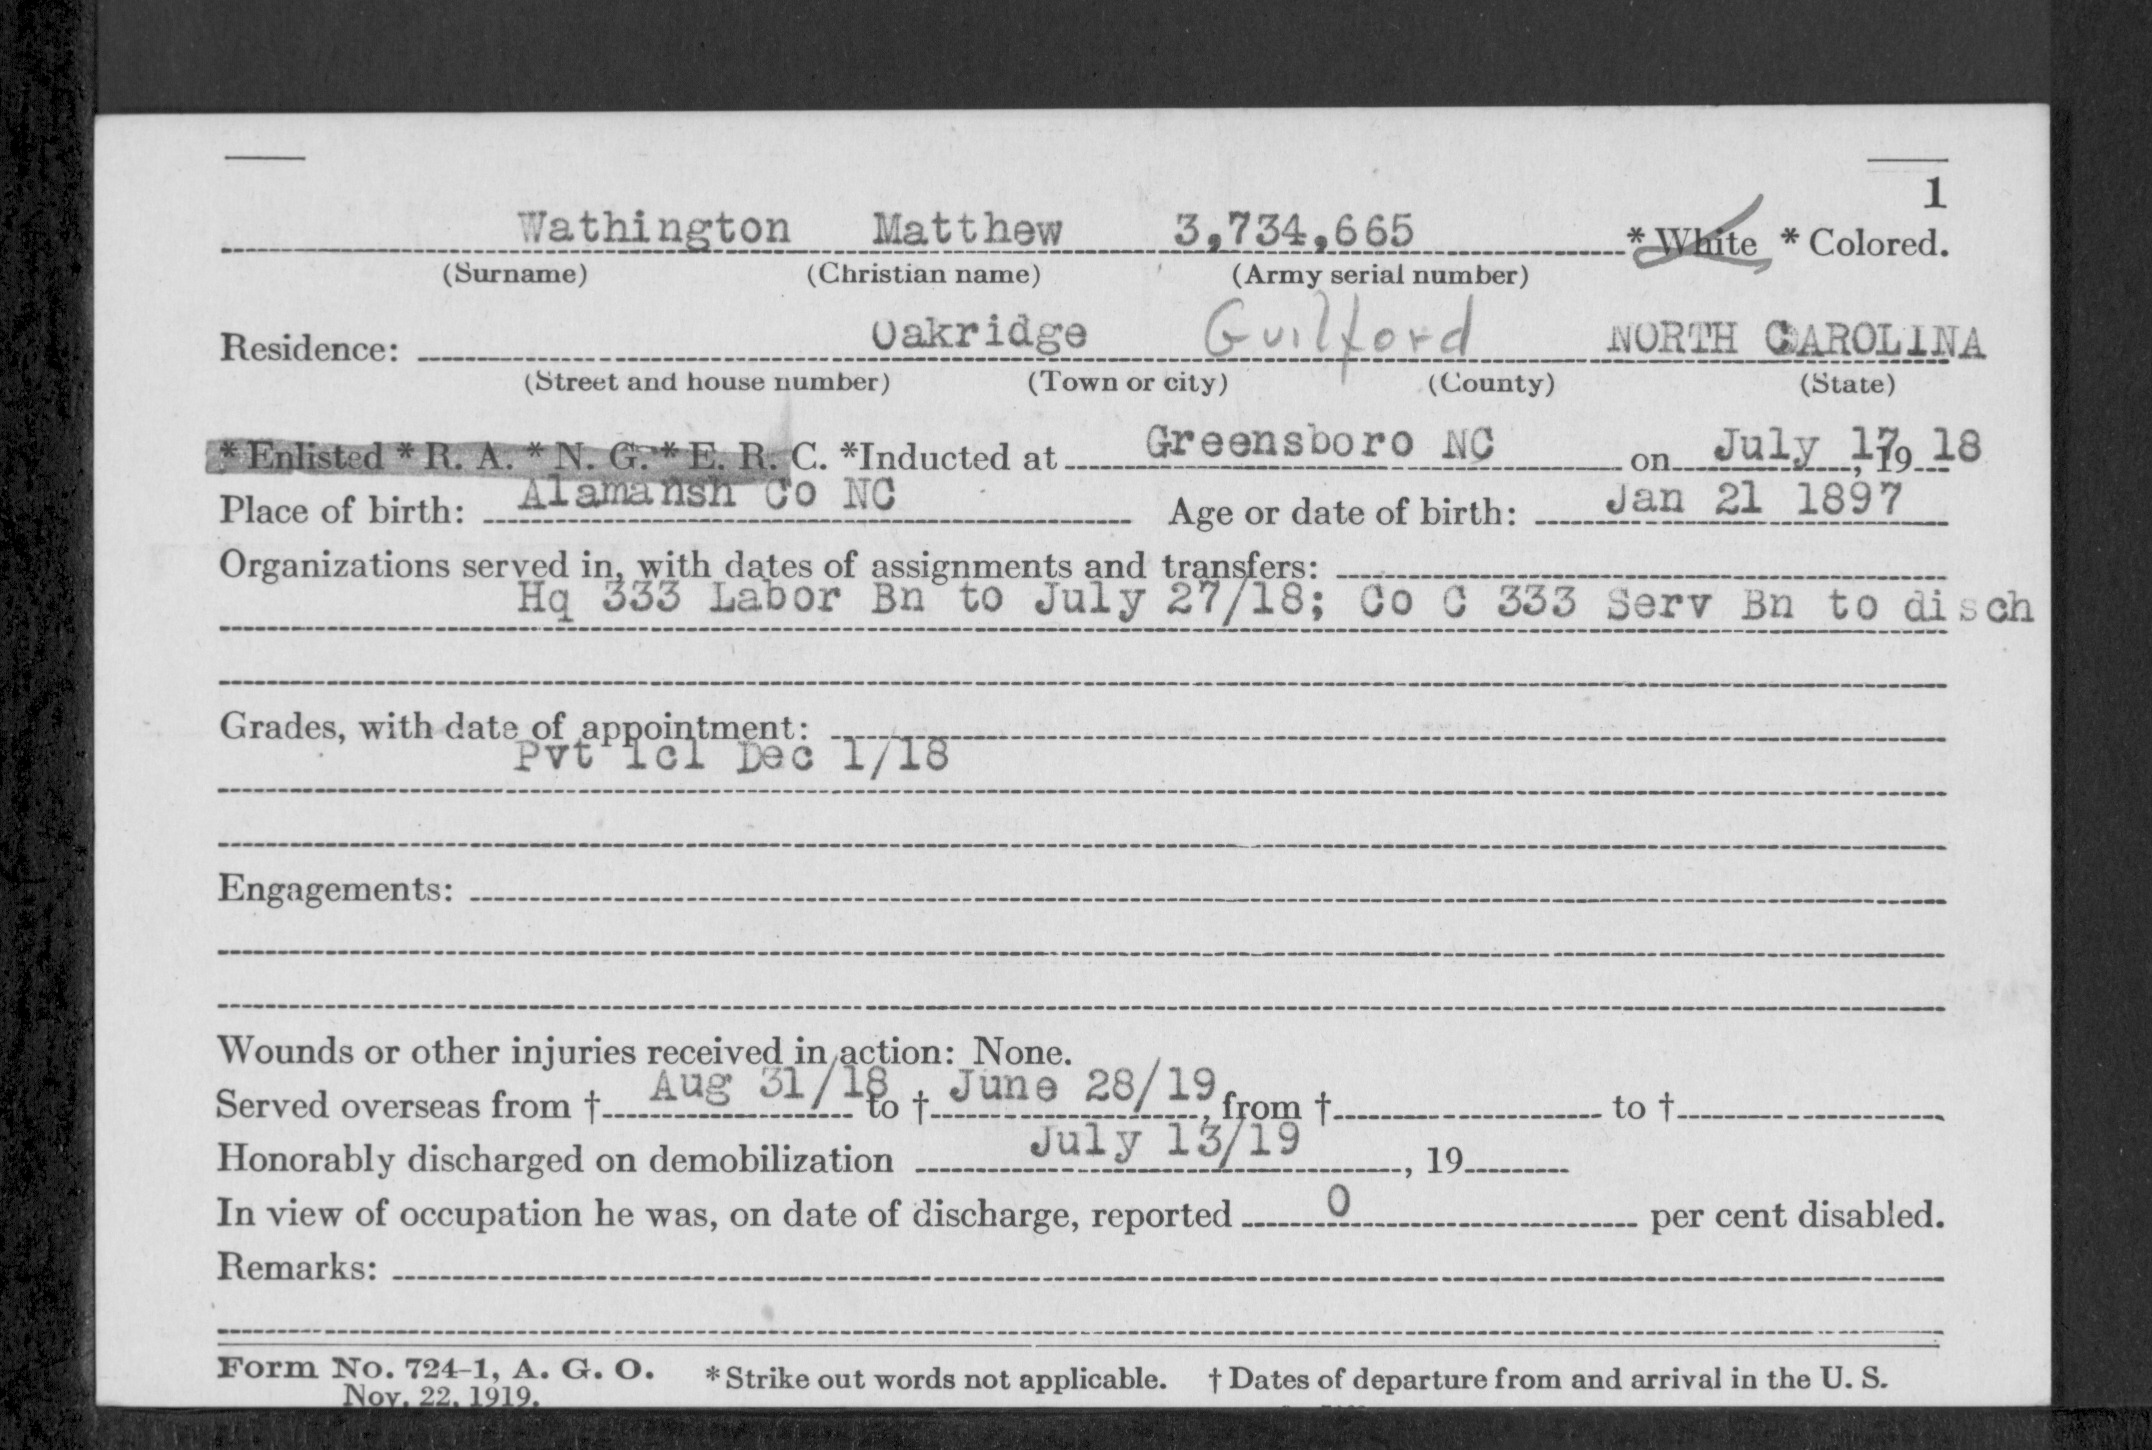 1
Wathington Matthew 3,734,665 * White * Colored.
(Surname) (Christian name) (Army serial number)
Residence: Oakridge Guilford NORTH CAROLINA
(Street and house number) (Town or city) (County) (State)
* Enlisted * R. A. * N. G. * E. R. C. *Inducted at Greensboro NC on July 17, 19 18
Place of birth: Alamansh Co NC Age or date of birth: Jan 21 1897
Organizations served in, with dates of assignments and transfers:
Hq 333 Labor Bn to July 27/18; Co C 333 Serv Bn to disch
Grades, with date of appointment:
Pvt 1cl Dec 1/18
Engagements:
Wounds or other injuries received in action: None.
Served overseas from † Aug 31/18 to † June 28/19, from † to †
Honorably discharged on demobilization July 13/19, 19
In view of occupation he was, on date of discharge, reported 0 per cent disabled.
Remarks:
Form No. 724-1, A. G. O. * Strike out words not applicable. † Dates of departure from and arrival in the U. S.
Nov. 22, 1919.